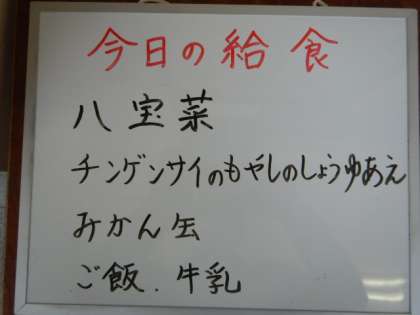 今日の給食
八宝菜
チンゲンサイのもやしのしょうゆあえ
みかん缶
ご飯.牛乳